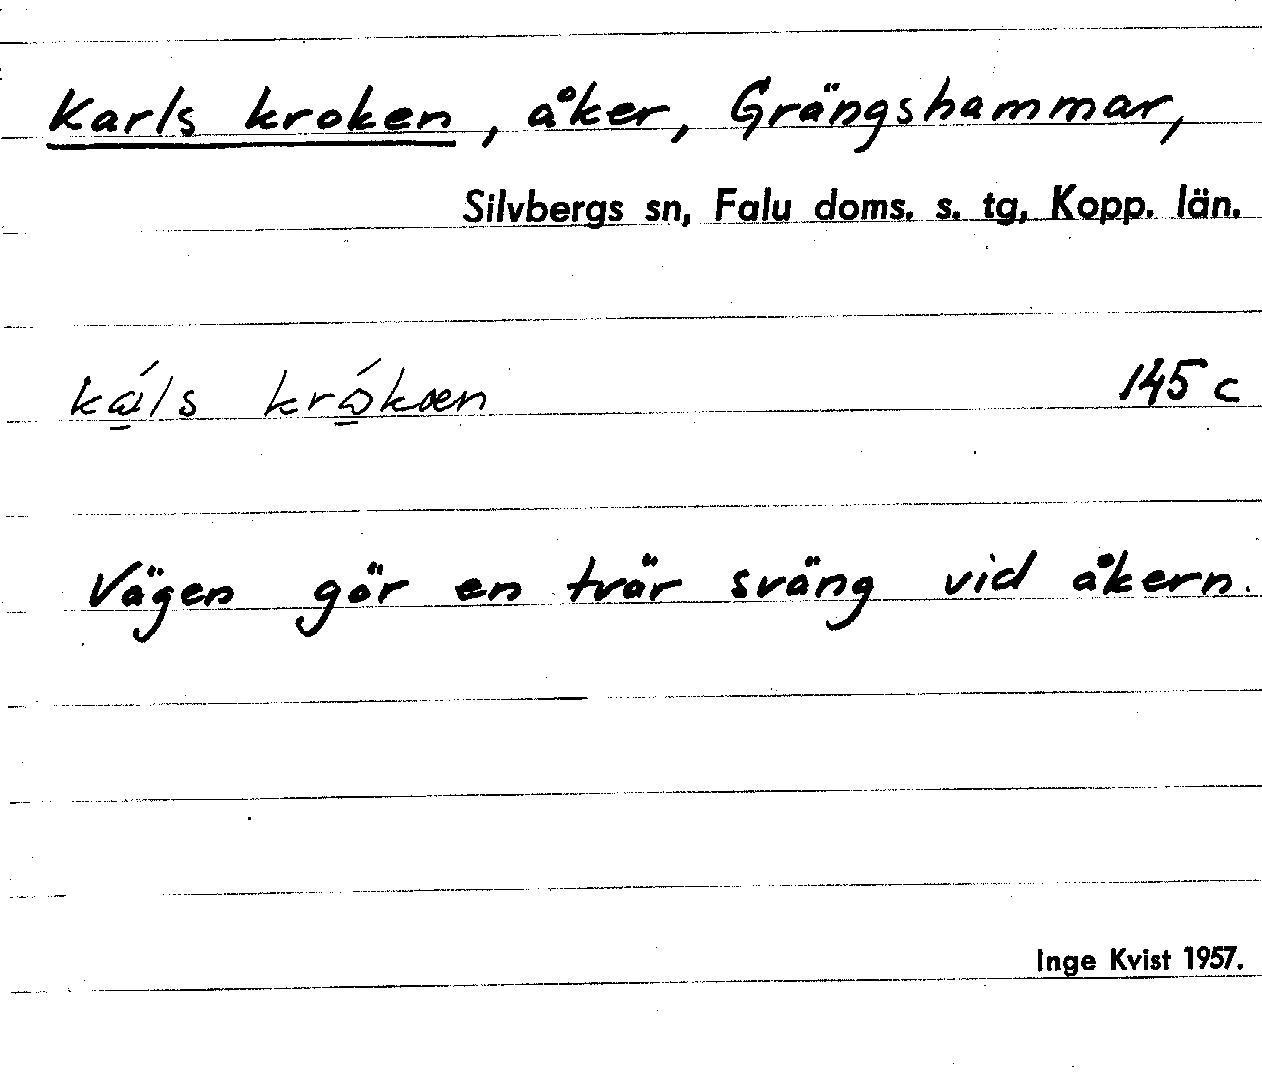 Karls kroken, åker, Grängshammar,
Silvbergs sn, Falu doms. s. tg, Kopp. län.
145 c
Vägen gör en tvär sväng vid åkern.
Inge Kvist 1957.